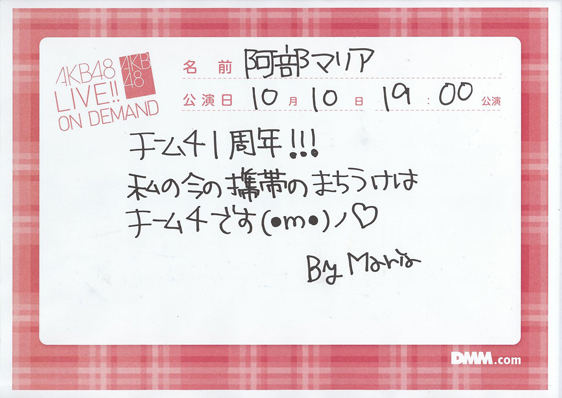 AKB48
LIVE!!
ON DEMAND
AKB
48
名前 阿部マリア
公演日 10月10日 19:00 公演
チーム4 1周年!!!
私の今の携帯のまちうけは
チーム4です(•m•)ノ♡
By Maria
DMM.com